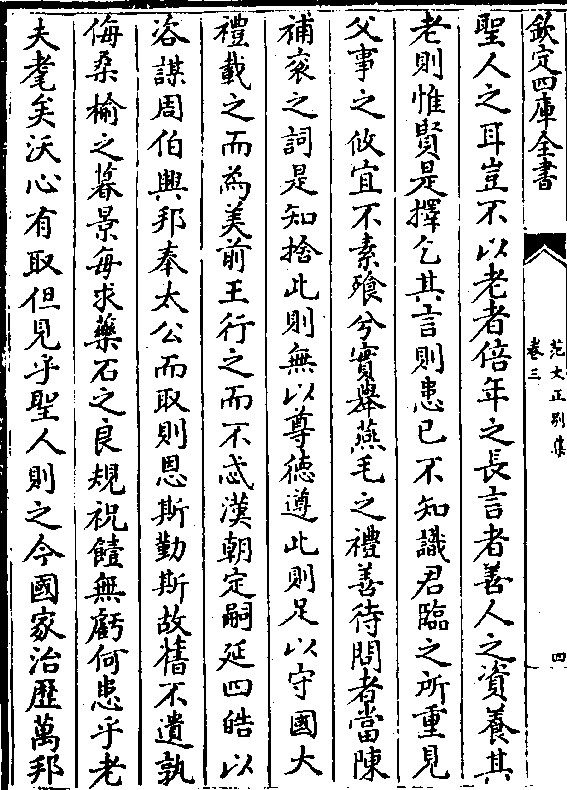 欽定四庫全書
范文正别集
卷三
四
聖人之耳豈不以老者倍年之長言者善人之資養其
老則惟賢是擇乞其言則患已不知識君臨之所重見
父事之攸宜不素飱兮實舉燕毛之禮善待問者當陳
補衮之詞是知捨此則無以尊徳遵此則足以守國大
禮載之而為美前王行之而不忒漢朝定嗣延四皓以
咨謀周伯興邦奉太公而取則恩斯勤斯故舊不遺孰
侮桑榆之暮景每求藥石之良規祝饐無虧何患乎老
夫耄矣沃心有取但見乎聖人則之今國家治歴萬邦